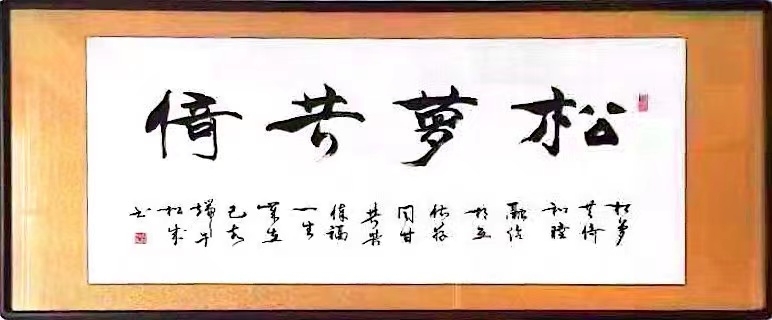 松萝共倚
松萝
共倚
和睦
融洽
相互
依存
同甘
共苦
福
一生
己亥
端午
松
书